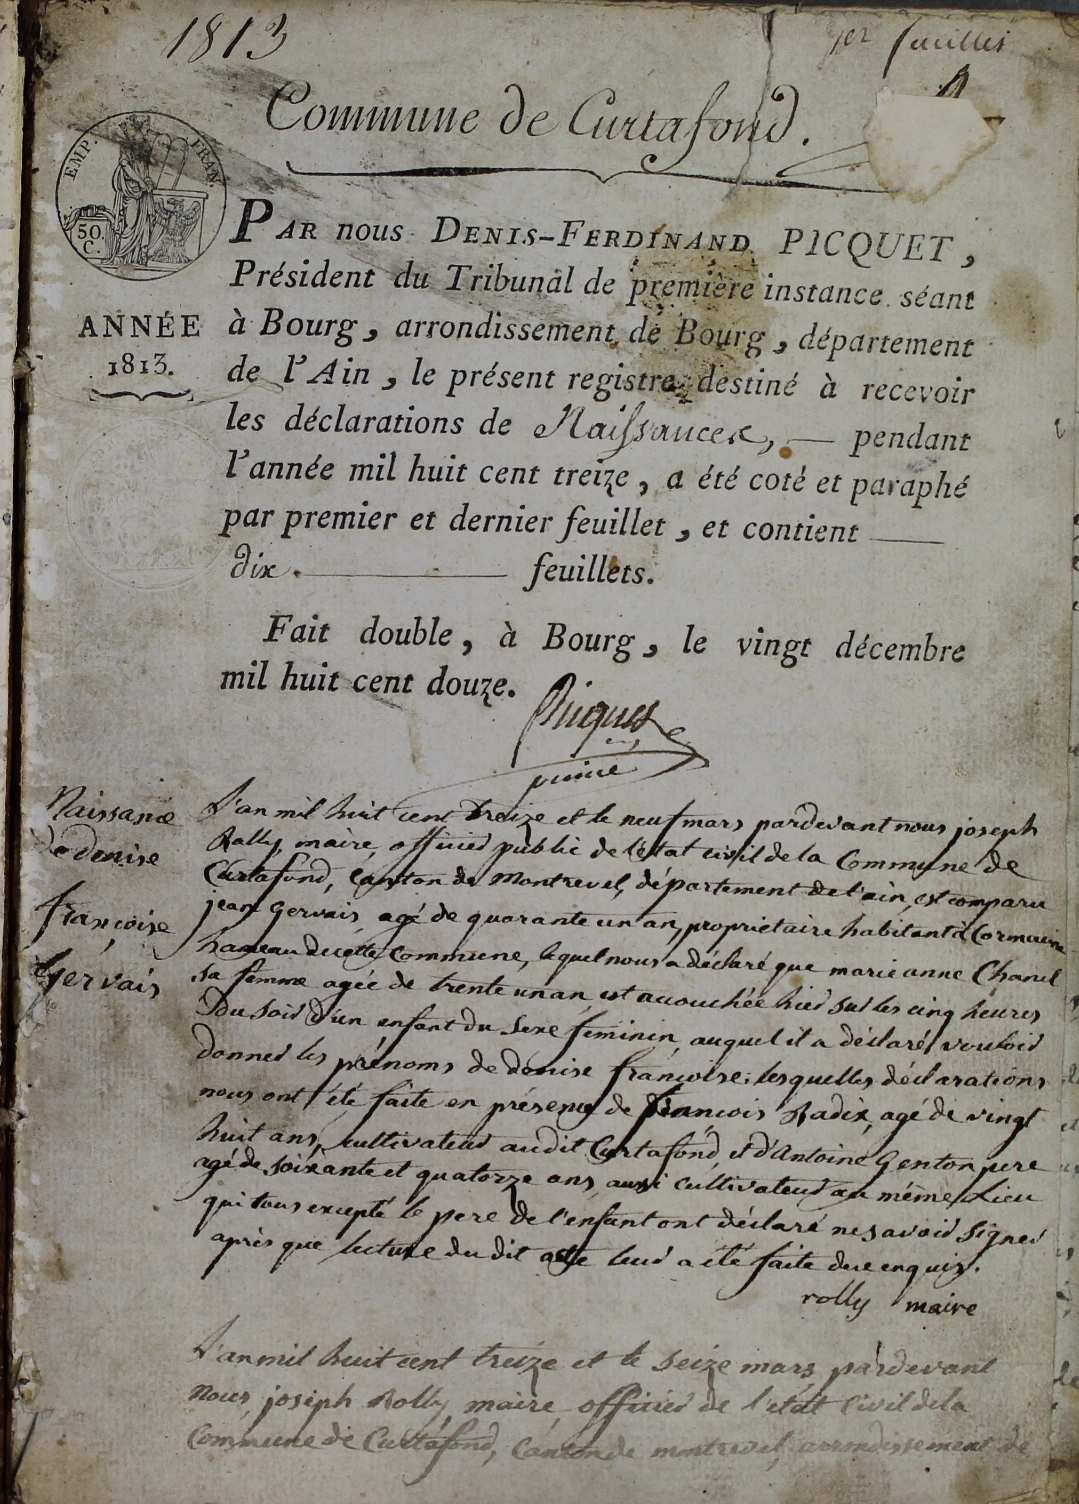 1813
1er feuillet
Commune de Curtafond.
EMP. FRAN.
50.
C.
PAR nous DENIS-FERDINAND PICQUET,
Président du Tribunal de première instance séant
ANNÉE
1813.
à Bourg, arrondissement de Bourg, département
de l'Ain, le présent registre destiné à recevoir
les déclarations de Naissances, — pendant
l'année mil huit cent treize, a été coté et paraphé
par premier et dernier feuillet, et contient —
dix. — feuillets.
Fait double, à Bourg, le vingt décembre
mil huit cent douze.
Picquet
Naissance
de denise
françoise
Gervais
L'an mil huit cent treize et le neuf mars pardevant nous joseph
Rolly, maire, officier public de l'état civil de la Commune de
Curtafond, Canton de Montrevel, département de l'ain, est comparu
jean Gervais, agé de quarante un an, proprietaire habitant à
hameau de cette Commune, lequel nous a déclaré que marie anne Chanel
sa femme agée de trente un an, est accouchée hier sur les cinq heures
Du soir d'un enfant du sexe féminin, auquel il a déclaré vouloir
donner les prénoms de denise françoise; lesquelles déclarations
nous ont été faite en présence de françois Radix, agé de vingt
huit ans, cultivateur audit Curtafond, et d'Antoine Genton pere
agé de soixante et quatorze ans, aussi cultivateur au même Lieu
qui tous excepté le pere de l'enfant ont déclaré ne savoir signer
après que lecture du dit acte leur a été faite de ce enquis.
rolly maire
L'an mil huit cent treize et le seize mars, pardevant
nous, joseph Rolly, maire, officier de l'état Civil de la
Commune de Curtafond, Canton de montrevel, arrondissement de